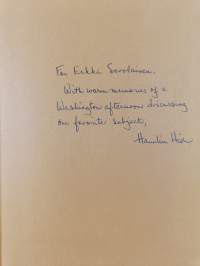 For Erkki Savolainen.
With warm memories of a
Washington afternoon discussing
our favorite subject,
Hamlin